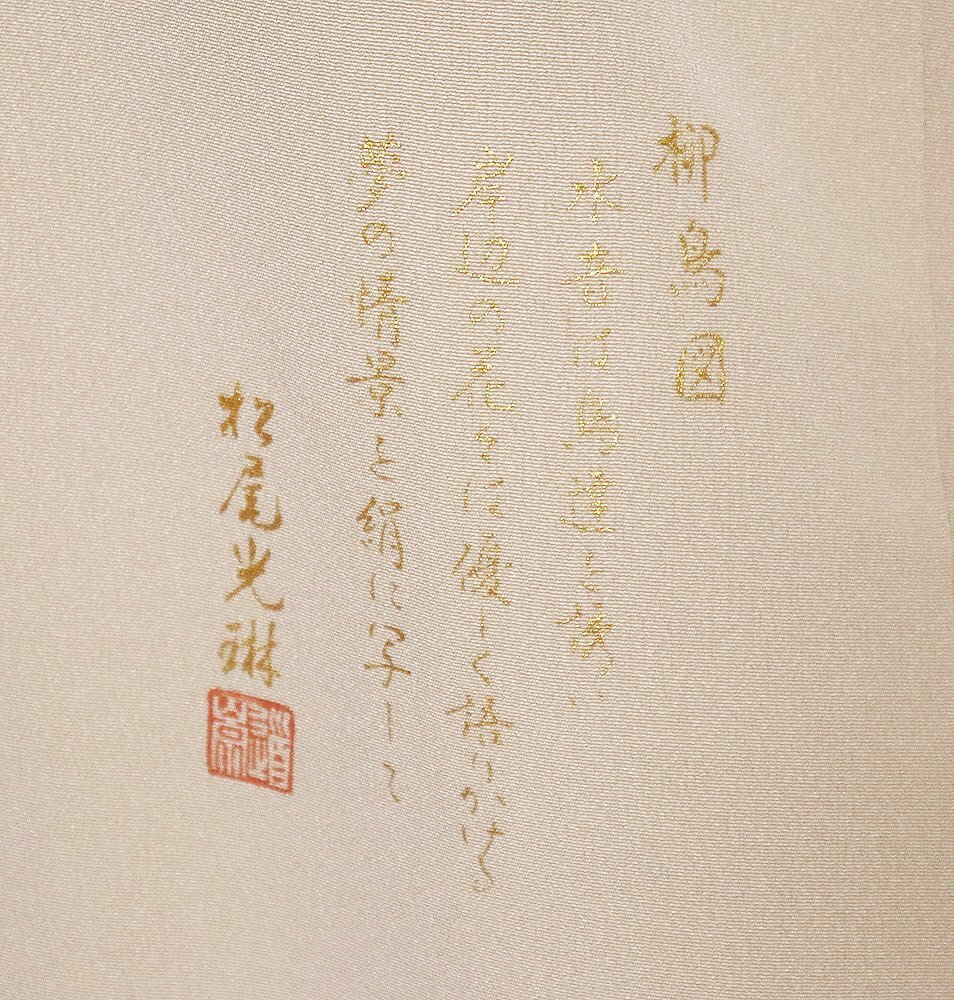 柳鳥図
水音は鳥達を誘い
岸辺の花々は優しく語りかける
夢の情景を絹に写して
松尾光琳